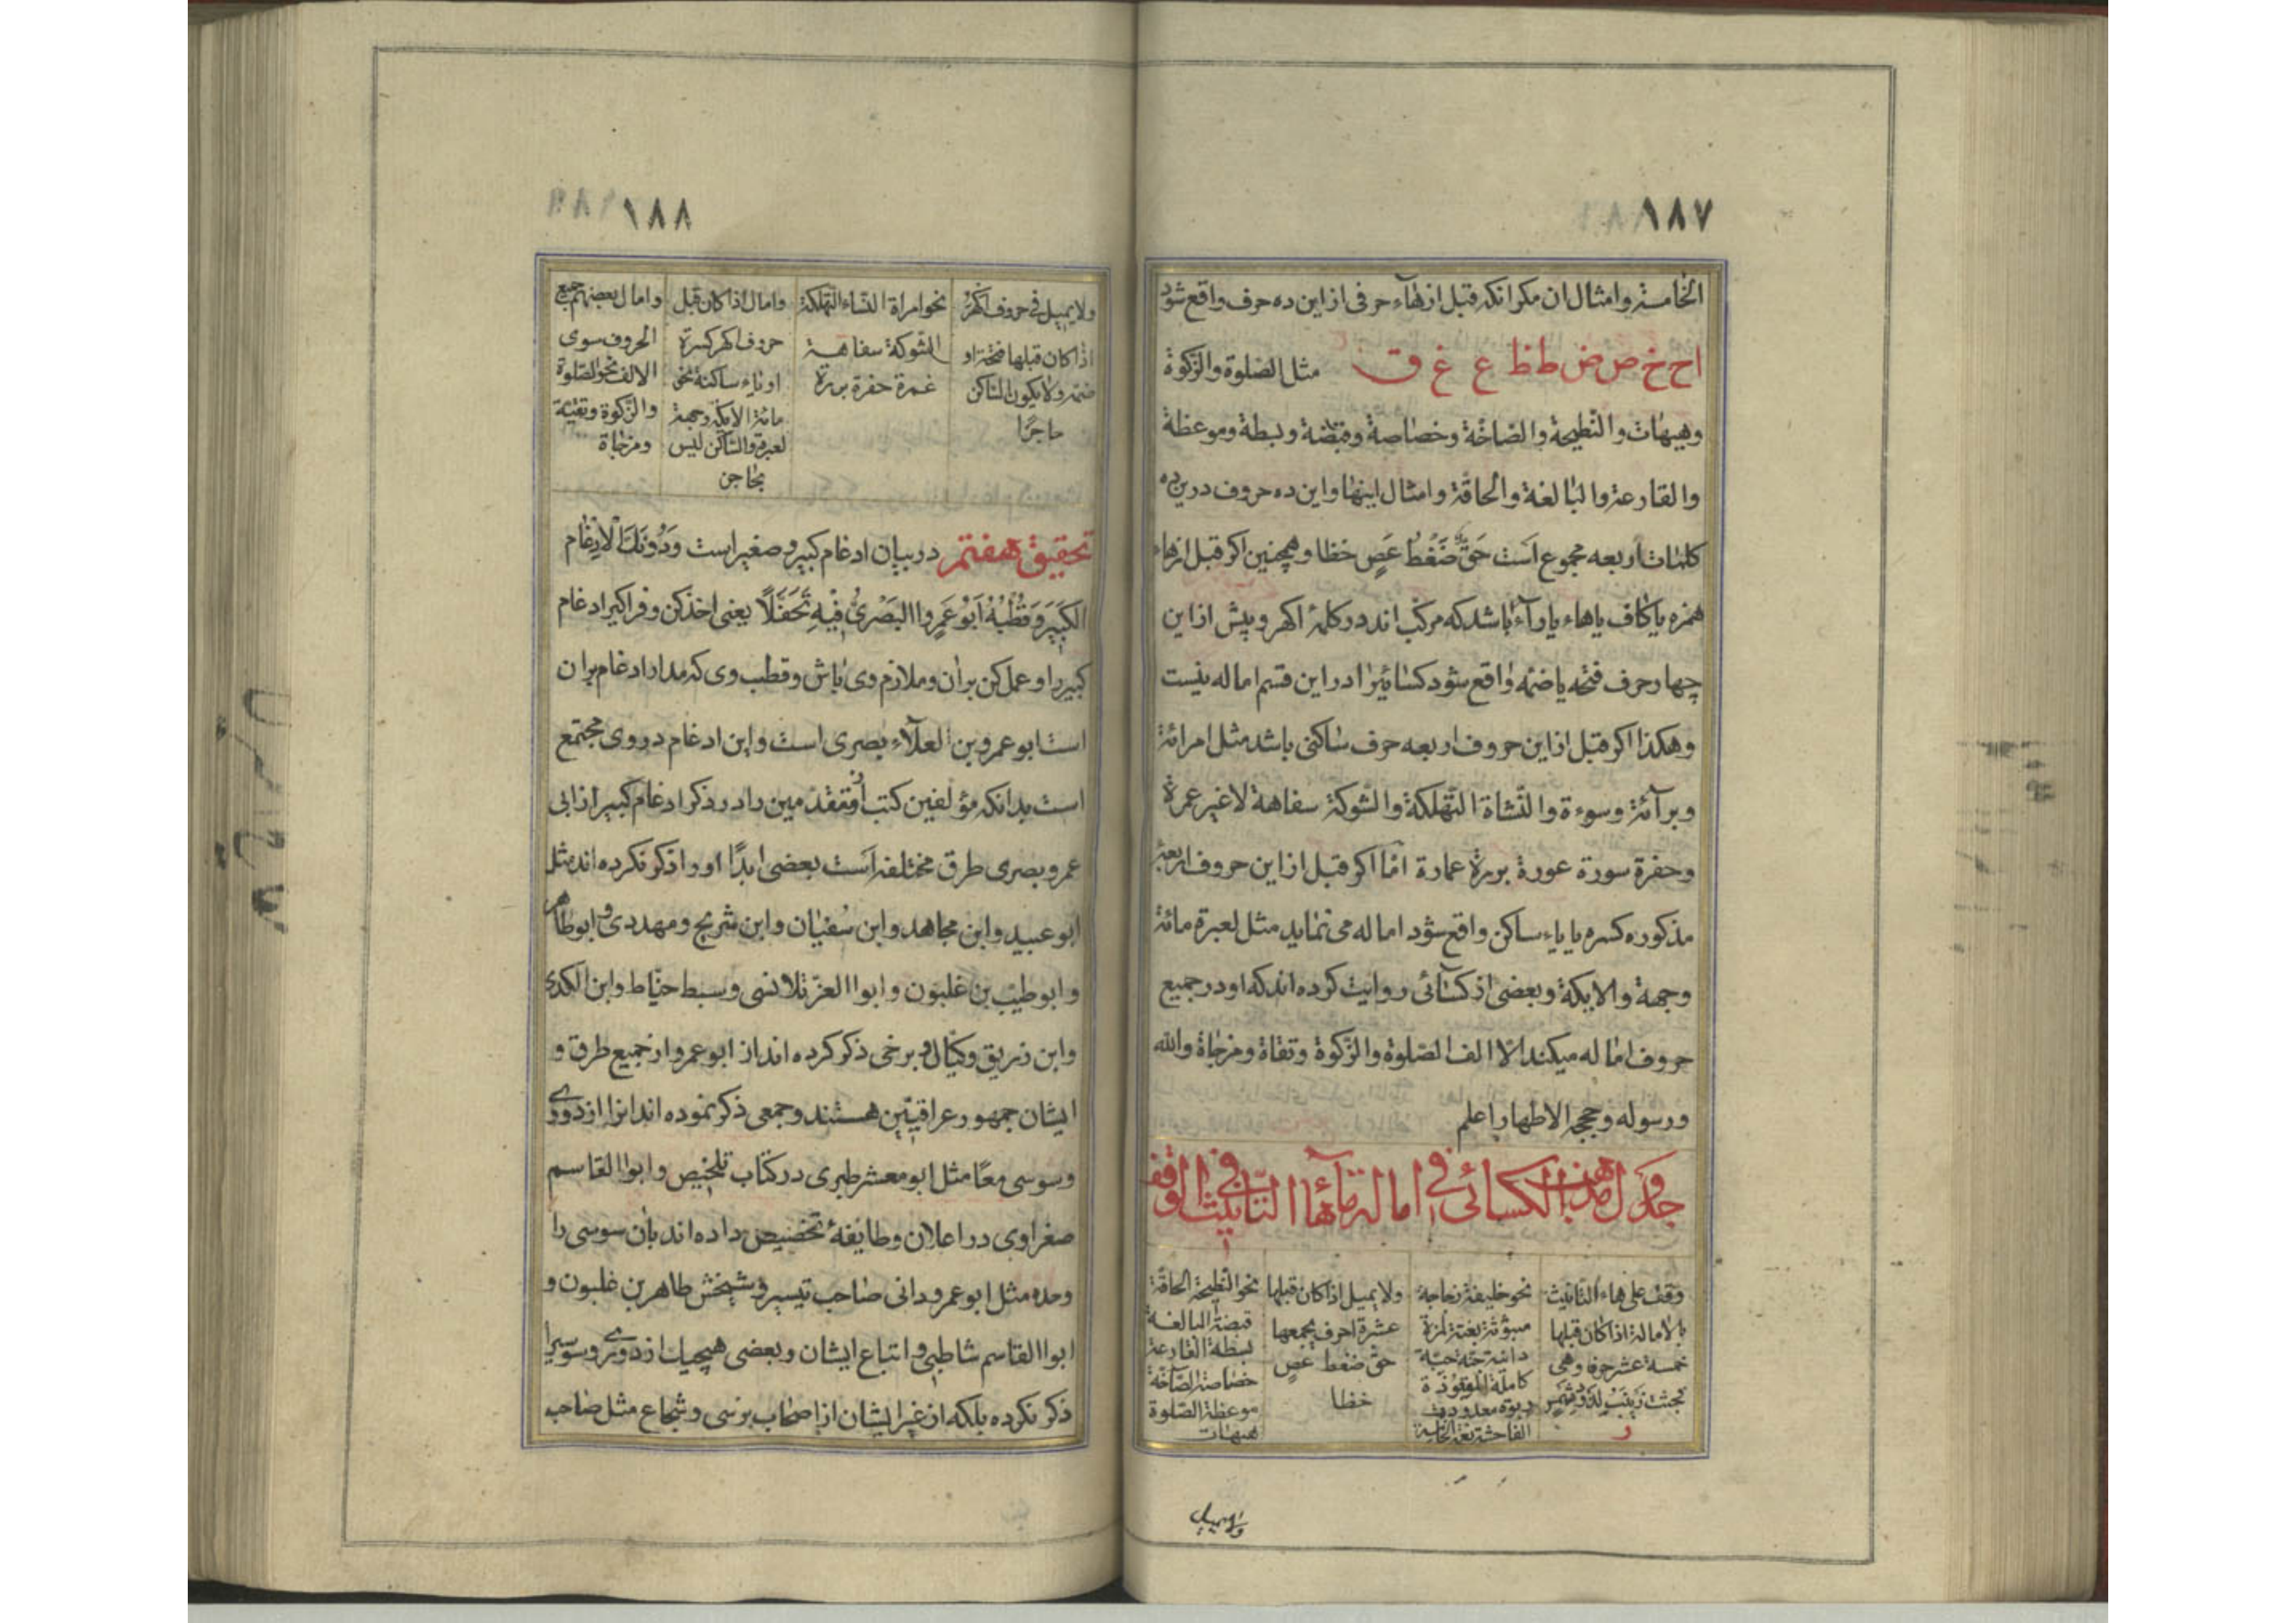 ١٨٧
الخامسة وامثال ان مكر انكه قبل از هاء حرفى از اين ده حرف واقع شود
اح خ ص ض ط ظ ع غ ق مثل الصلوة والزكوة
وهيهات والنطيحة والصاخة وخصاصة وقبضة وبسطة وموعظة
والقارعة والبالغة والحاقة وامثال اينها واين ده حروف درين
كلمات اربعه مجموع است حَقٌّ ضَغْطُ عَصٍ خظا وهمچنين اكر قبل از هاء
همزه يا كاف يا هاء يا راء باشد كه مركب اند در كلمهٔ اكهر و پيش از اين
چهار حرف فتحه يا ضمه واقع شود كسائى را در اين قسم اماله نيست
وهكذا اكر قبل از اين حروف اربعه حرف ساكنى باشد مثل امرائة
وبرآئة وسوءة والنشاة التهلكة والشوكة سفاهة لاغير عمرة
وحفرة سورة عورة بررة عمارة امّا اكر قبل از اين حروف اربعة
مذكوره كسره يا ياء ساكن واقع شود اماله مى نمايد مثل لعبرة مائة
وجهة والايكة وبعضى از كسآئى روايت كرده اند كه او در جميع
حروف اماله ميكند الّا الف الصلوة والزكوة وتقاة ومزجاة والله
ورسوله وحججه الاطهار اعلم
جدول مذهب الكسائى فى امالة هآء التانيث فى الوقف
وقف على هاء التانيث
بالامالة اذا كان قبلها
خمسة عشر حرفا وهى
فجثت زينب لذود شمس
نحو خليفة نعاجة
مبثوثة بغتة لمزة
دانية جنة حبة
كاملة الموقوذة
ربوة معدودة
الفاحشة
ولا يميل اذا كان قبلها
عشرة احرف يجمعها
حق ضغط عص
خظا
نحو النطيحة الحاقة
قبضة البالغة
بسطة القارعة
خصاصة الصآخة
موعظة الصلوة
هيهات
ولا يميل
١٨٨
ولا يميل فى حروف اكهر
اذا كان قبلها فتحة او
ضمة ولا يكون الساكن
حاجزًا
نحو امراة النشاء التهلكة
الشوكة سفاهة
عمرة حفرة بررة
وامال اذا كان قبل
حروف اكهر كسرة
او ياء ساكنة نحو
مائة الايكة وجهة
لعبرة والساكن ليس
بحاجز
وامال بعضهم جميع
الحروف سوى
الالف نحو الصلوة
والزكوة وتقية
ومزجاة
تحقيق هفتم در بيان ادغام كبير و صغير است وَدُونَكَ الْاِدْغَام
الكَبِيرَ وَقُطْبُهُ اَبُو عَمرٍو البَصْرىُّ فِيهِ تَحَفَّلًا يعنى اخذ كن و فراكير ادغام
كبير را و عمل كن بران و ملازم وى باش و قطب وى كه مدار ادغام بران
است ابو عمرو بن العلآء بصرى است واين ادغام در وى مجتمع
است بدانكه مؤلفين كتب از متقدمين را در ذكر ادغام كبير از ابى
عمرو بصرى طرق مختلفه است بعضى ابدًا او را ذكر نكرده اند مثل
ابو عبيد وابن مجاهد وابن سفيان وابن شريح ومهددى وابو طاهر
وابو طيب بن غلبون وابوا العز قلانسى وسبط حنّاط وابن الكدى
وابن زريق وكيّال و برخى ذكر كرده اند از ابو عمرو از جميع طرق و
ايشان جمهور عراقيّين هستند وجمعى ذكر نموده اند انرا از دورى
وسوسى معًا مثل ابو معشر طبرى در كتاب تلخيص وابوا القاسم
صفراوى در اعلان وطايفهٔ تخصيص داده اند بان سوسى را
وحده مثل ابو عمرو دانى صاحب تيسير و شيخش طاهر بن غلبون و
ابوا القاسم شاطبى و اتباع ايشان و بعضى هيچيك از دورى و سوسى را
ذكر نكرده بلكه از غير ايشان از اصحاب يزيدى و شجاع مثل صاحب